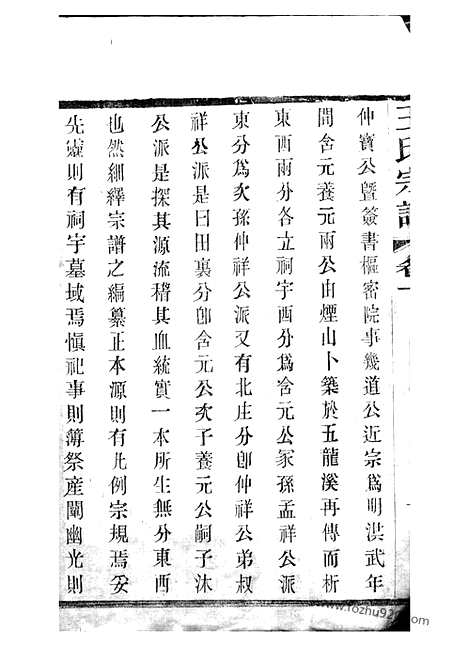 王氏宗譜 卷一
仲寶公曁簽書樞密院事幾道公近宗爲明洪武年
間含元養元兩公由煙山卜築於五龍溪再傳而析
東西兩分各立祠宇西分爲含元公冢孫孟祥公派
東分爲次孫仲祥公派又有北庄分卽仲祥公弟叔
祥公派是曰田裏分卽含元公次子養元公嗣子沐
公派是探其源流稽其血統實一本所生無分東西
也然細繹宗譜之編纂正本源則有凡例宗規焉妥
先靈則有祠宇墓域焉愼祀事則簿祭産闡幽光則
www.fozhu920.com